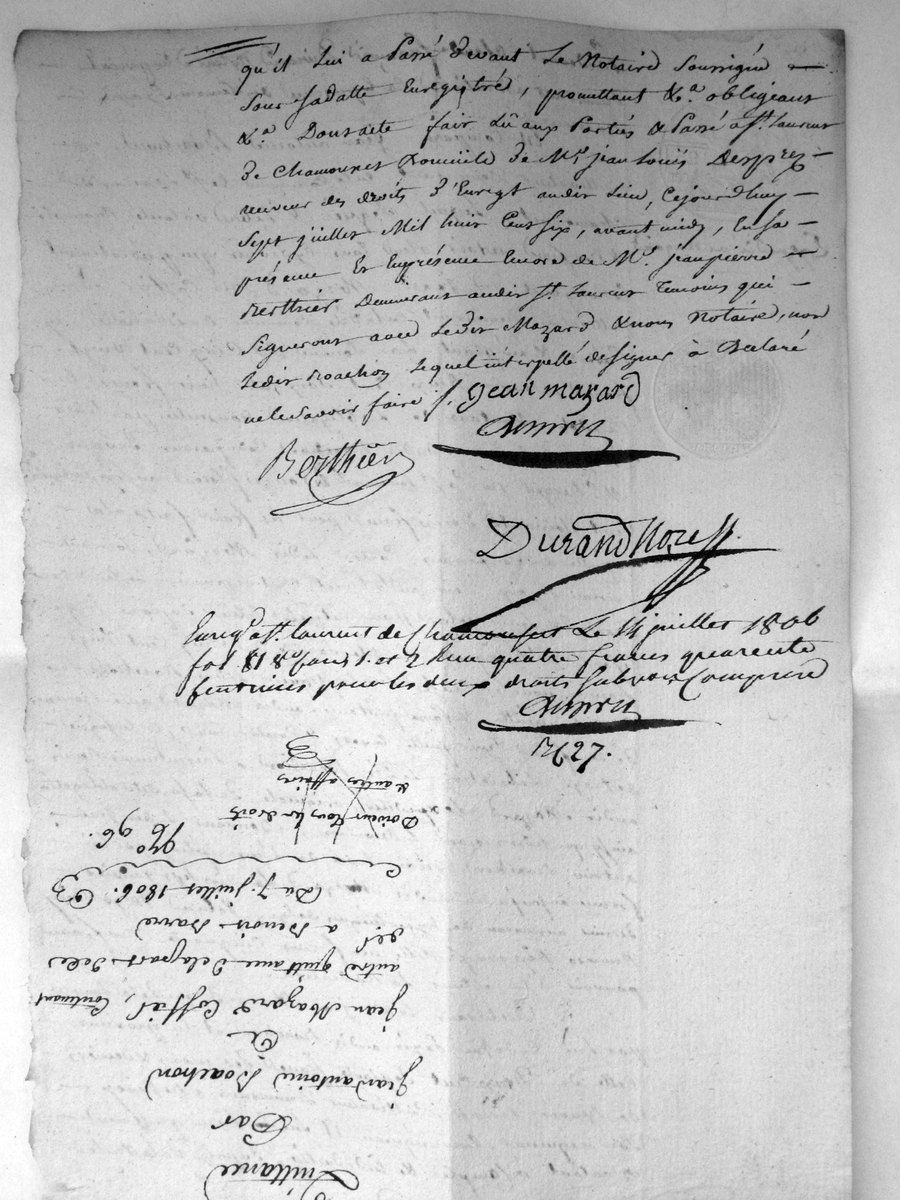 qu'il lui a Passé devant le Notaire soussigné
sous sa datte Enregistré, promettant &.a obligeant
&.a Dont acte fait lû aux Parties & Passé a St. Laurent
de Chamousset Domicile de Mr. jean Louis Desprez
receveur des droits d'Enregt audit lieu, Cejourdhuy
Sept juillet Mil huit Cent six, avant midy, En sa
présence Et En présence Encore de Mr. jean pierre
Berthier Demeurant audit St. Laurent Temoins qui
Signeront avec ledit Mazard & nous Notaire, non
ledit Boachon lequel interpellé de signer à Declaré
ne le savoir faire /. jean mazard
Berthier
Durand Nore
Enregé a St. laurent de Chamousset Le 14 juillet 1806
fol 81 Ro Cases 1. et 2 Reçu quatre francs quarente
Centimes pour les deux droits Subvon Comprise
R 627.
Quittance
Par
jean antoine Boachon
A
jean Mazard Coffiet, Contenant
autre quittance delapart de
a Benoit Barre
Du 7. juillet 1806.
No 96.
Doivent tous les droits
& autres affaires